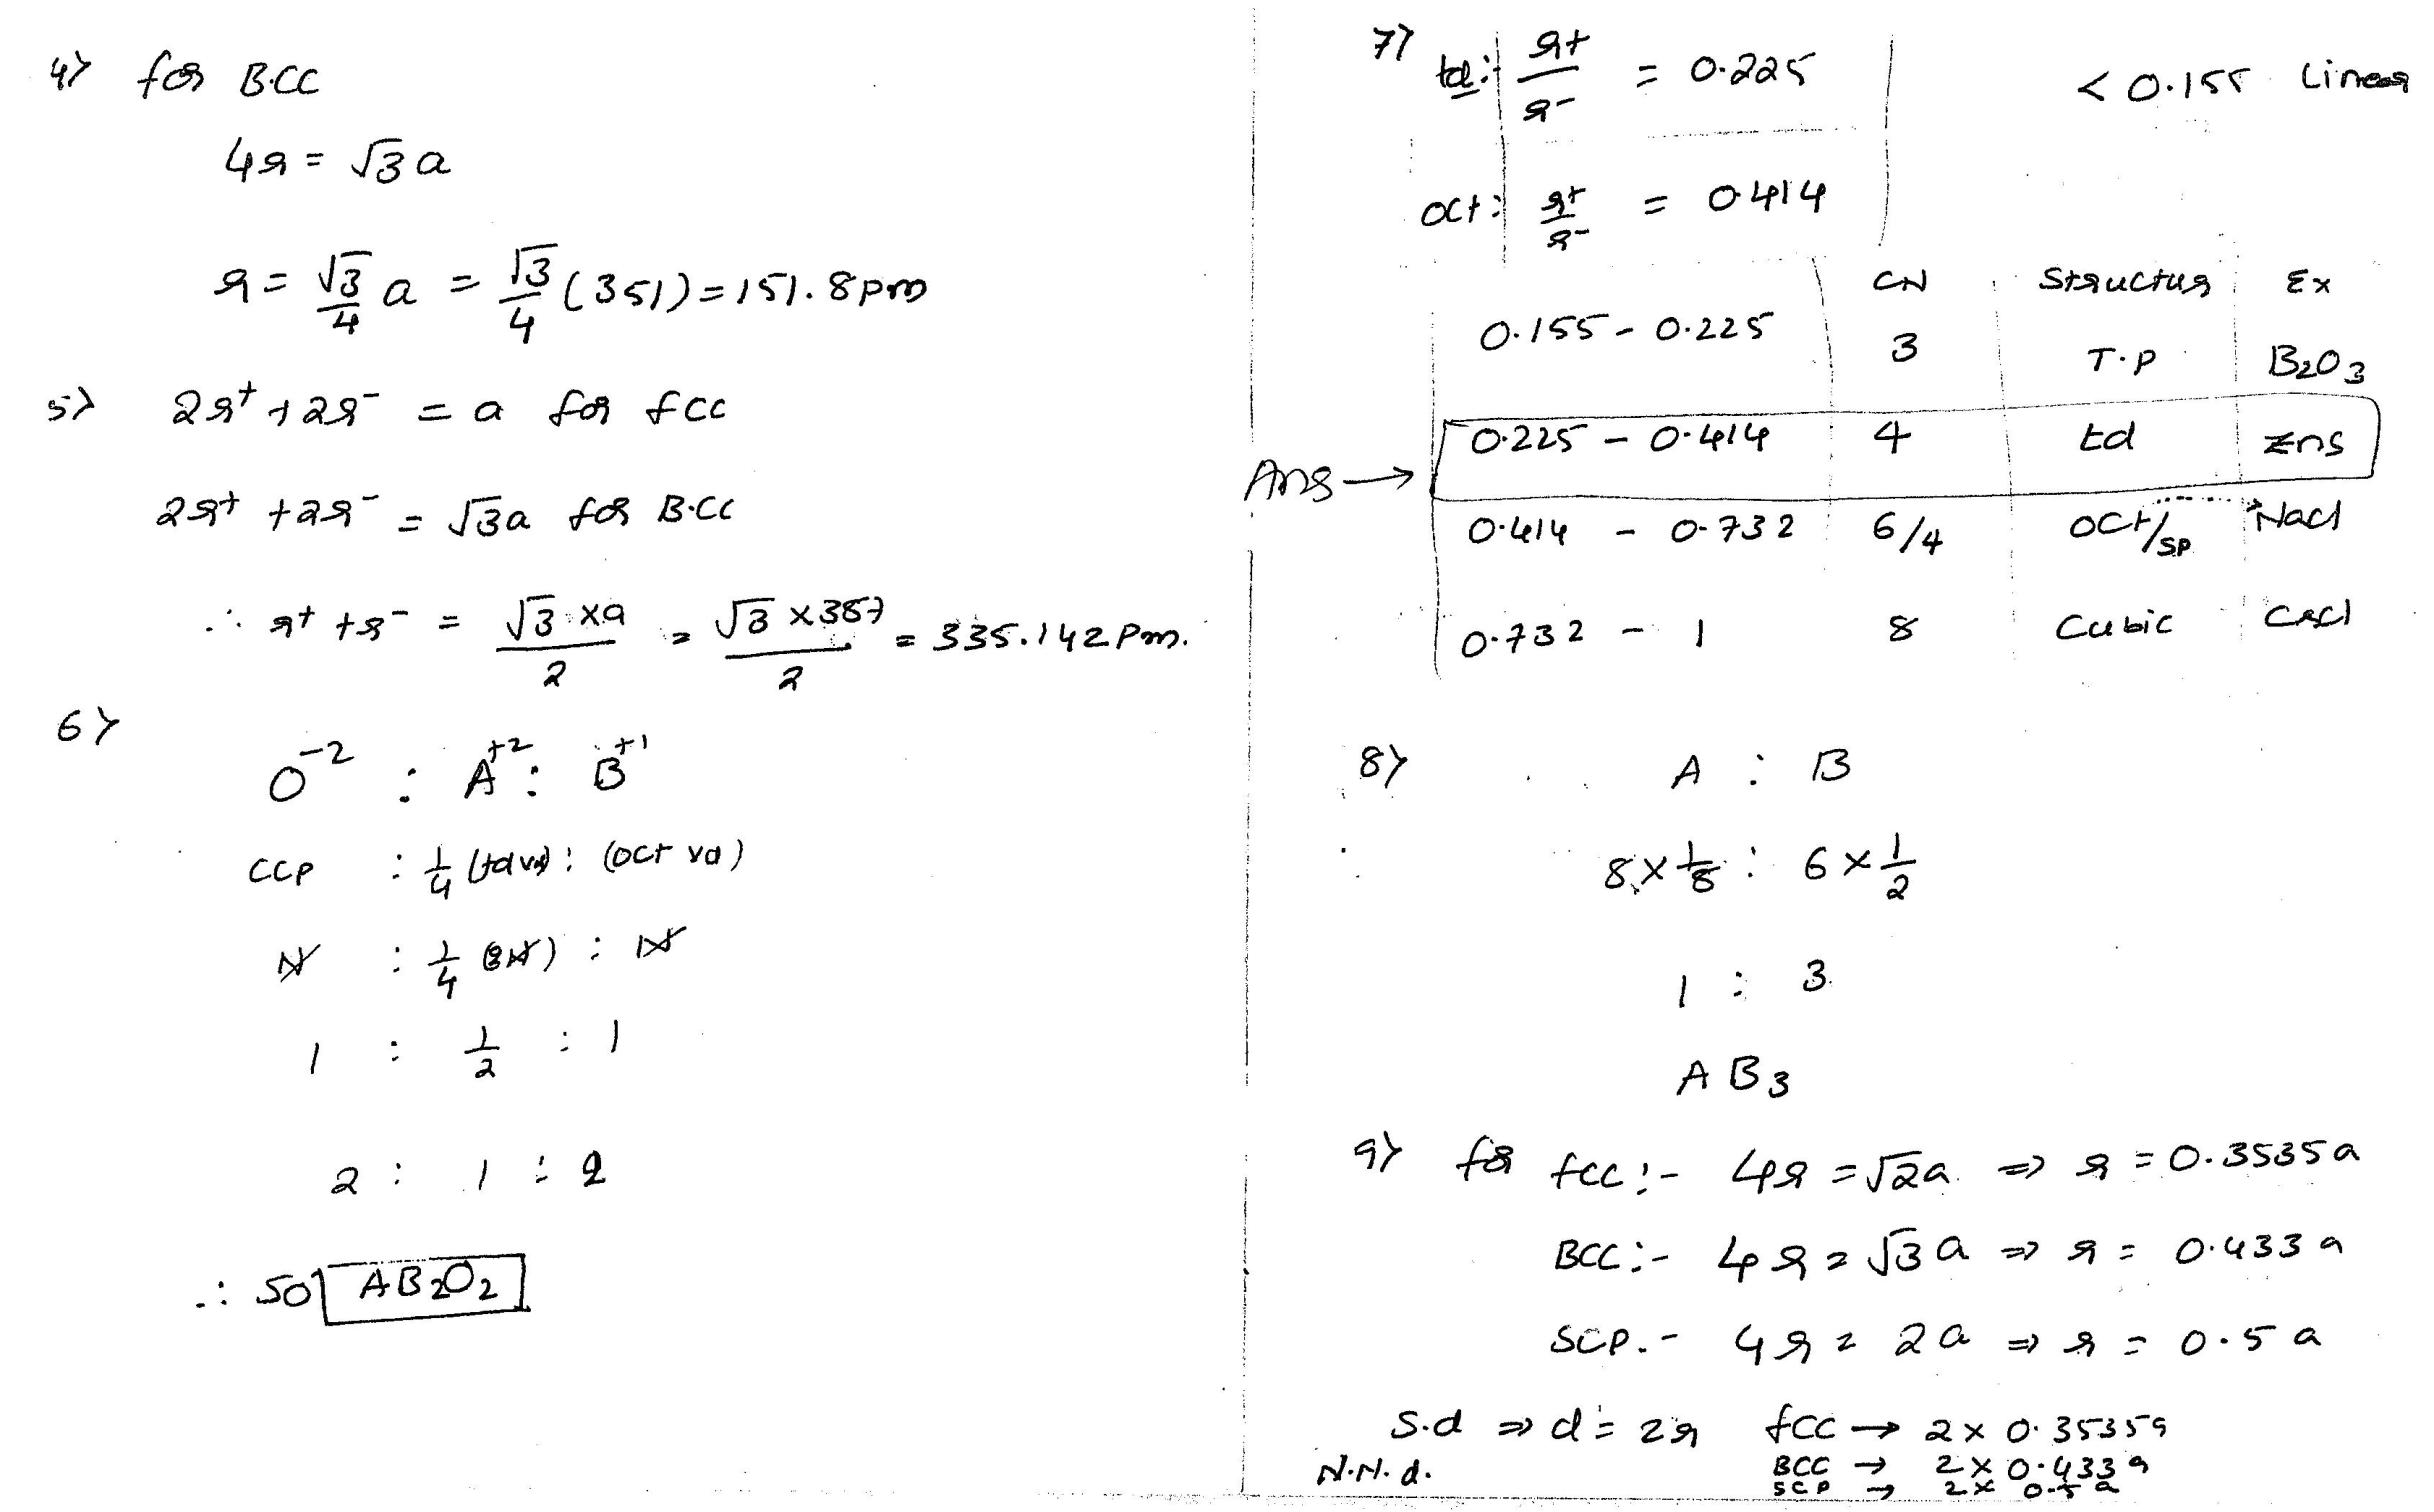 4) for B.CC
4r = √3 a
r = √3/4 a = √3/4 (351) = 151.8 pm
5) 2r⁺ + 2r⁻ = a for fcc
2r⁺ + 2r⁻ = √3a for B.CC
∴ r⁺ + r⁻ = √3 × a / 2 = √3 × 387 / 2 = 335.142 Pm.
6)
O⁻² : A⁺² : B⁺¹
CCP : 1/4 (td vd) : (oct vd)
N : 1/4 (2N) : N
1 : 1/2 : 1
2 : 1 : 2
∴ Sol AB₂O₂
7) td:- r⁺/r⁻ = 0.225 < 0.155 Linear
oct: r⁺/r⁻ = 0.414
CN Structur Ex
0.155 - 0.225 3 T.P B₂O₃
Ans → 0.225 - 0.414 4 td Zns
0.414 - 0.732 6/4 oct/sp Nacl
0.732 - 1 8 Cubic Cscl
8) A : B
8 × 1/8 : 6 × 1/2
1 : 3
AB₃
9) for fcc:- 4r = √2a ⇒ r = 0.3535a
BCC:- 4r = √3a ⇒ r = 0.433a
SCP.- 4r = 2a ⇒ r = 0.5a
S.d ⇒ d = 2r fcc → 2 × 0.3535a
N.N.d. BCC → 2 × 0.433a
SCP → 2 × 0.5a